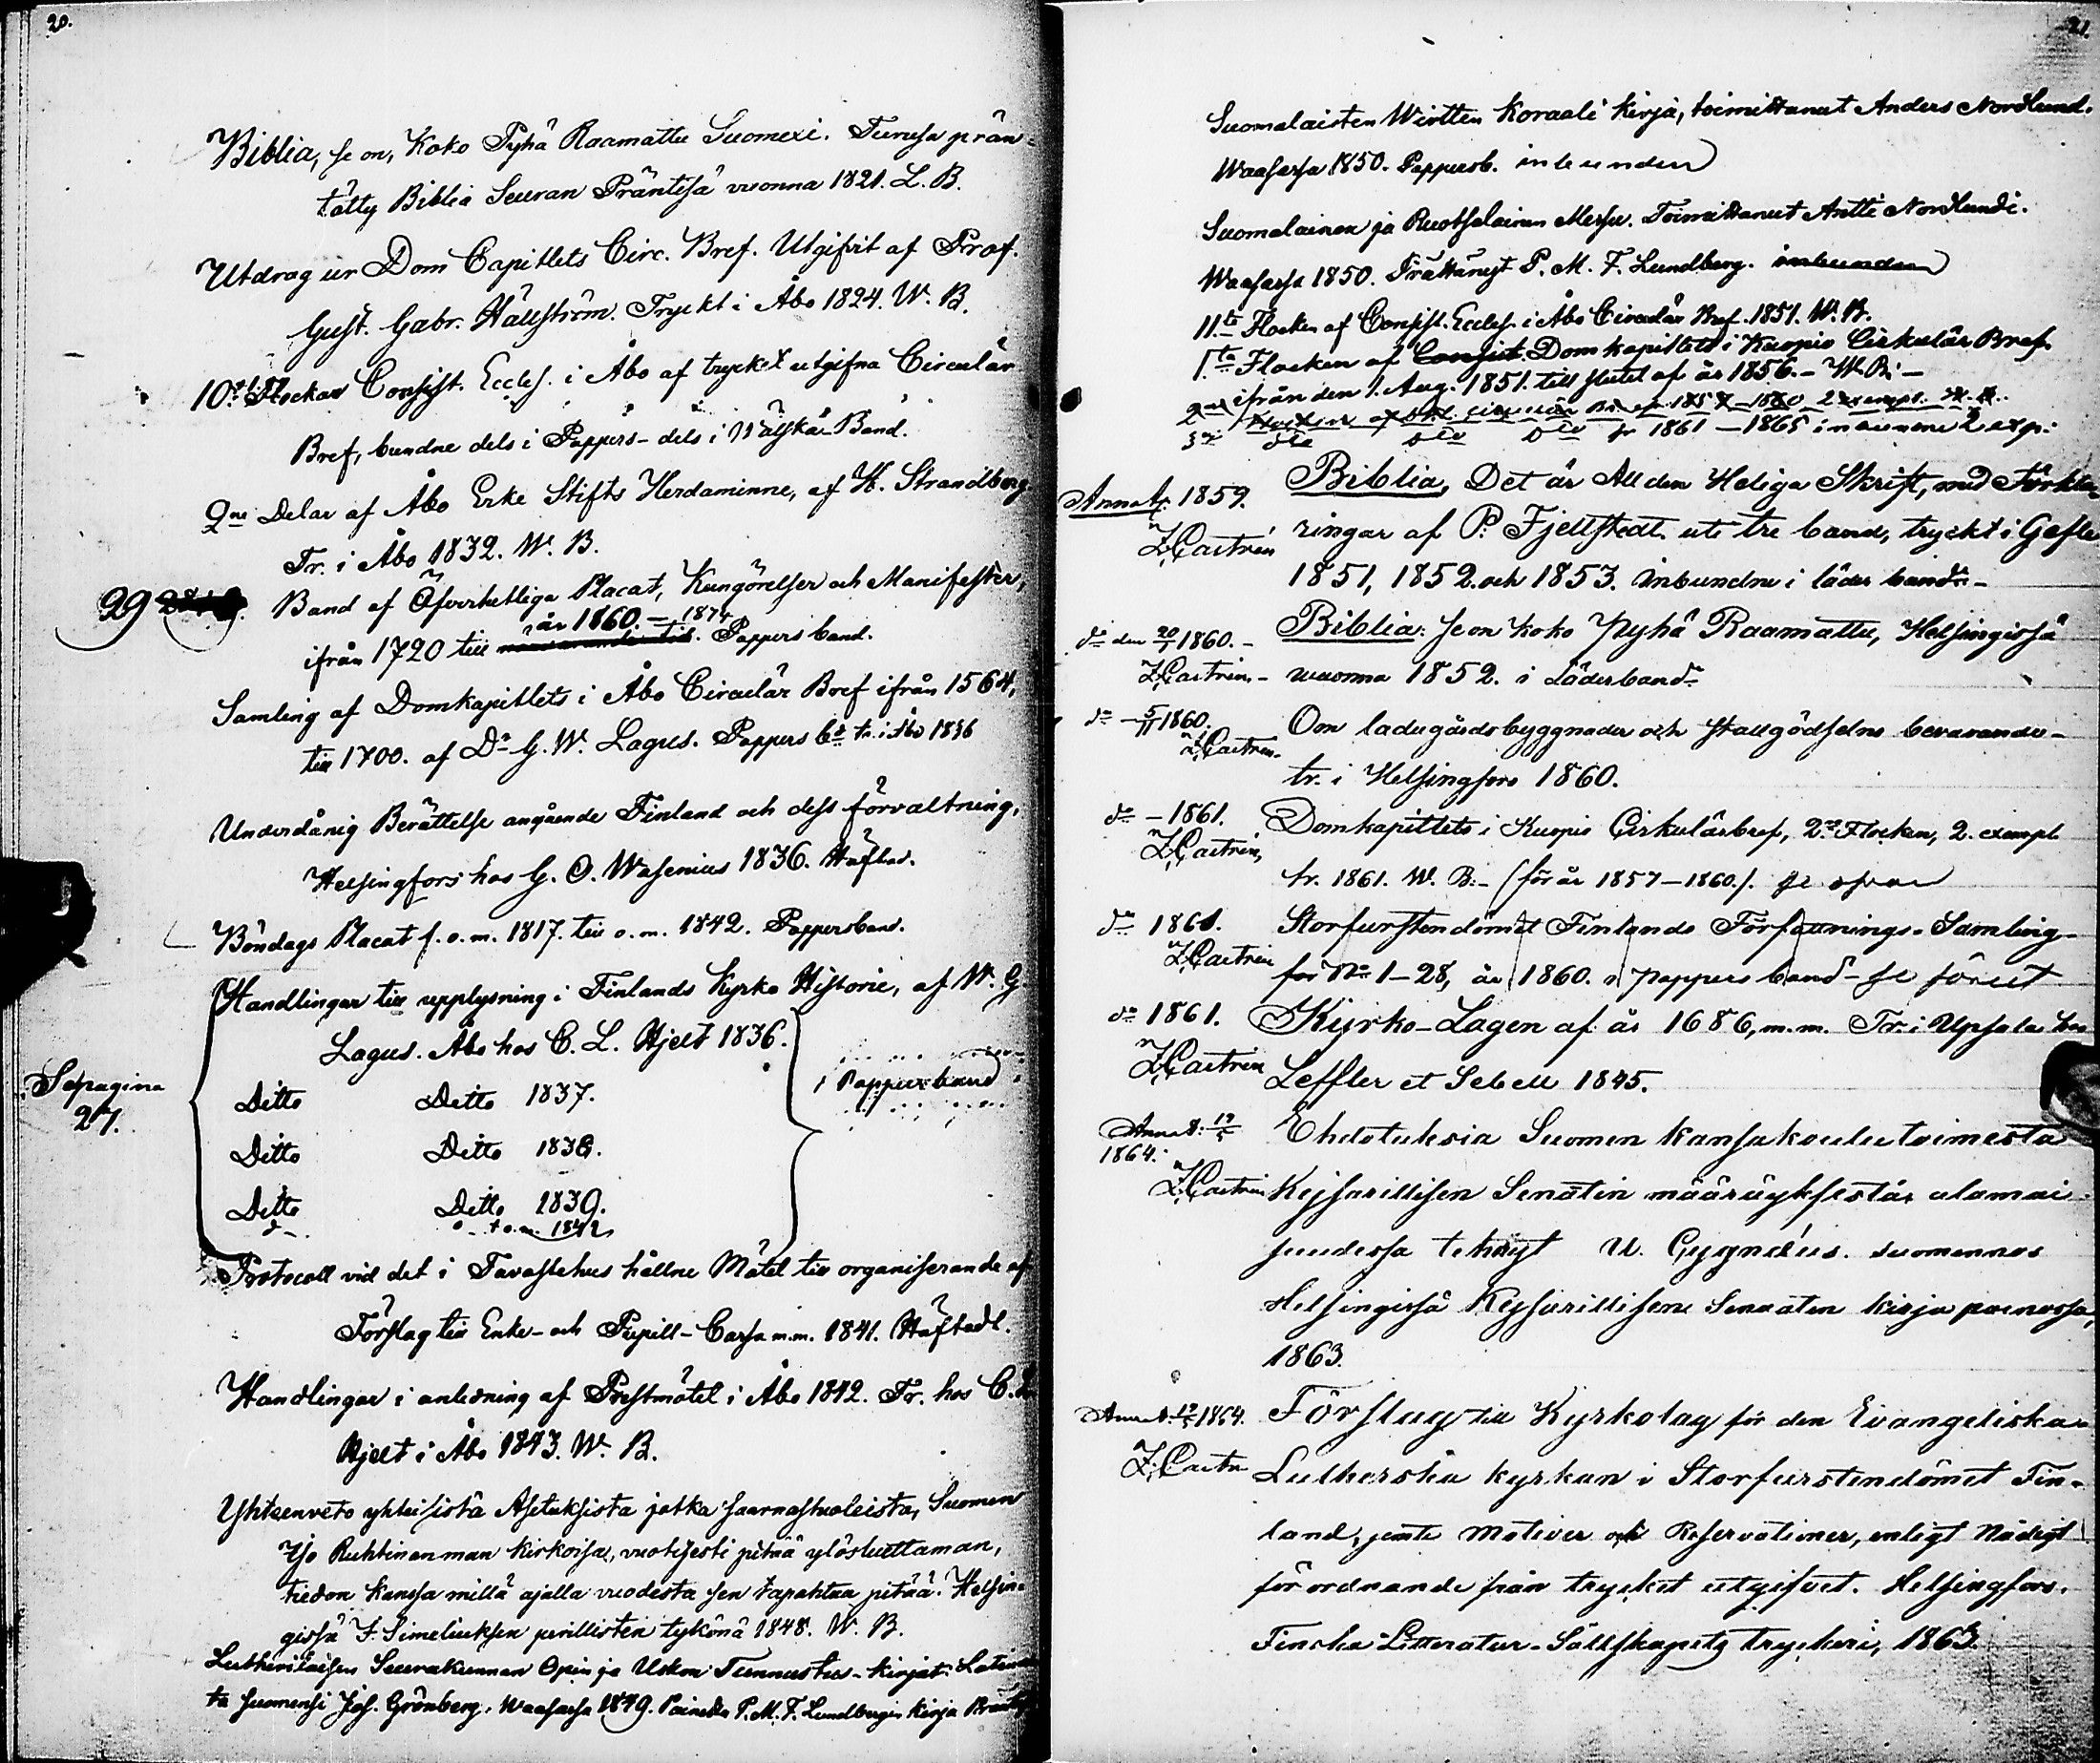 20.
Biblia, se on, Koko Pyhä Raamattu Suomexi. Turusa prän=
tätty Biblia Seuran Präntisä vuonna 1821. L. B.
Utdrag ur Dom Capitlets Circ. Bref. Utgifvit af Prof.
Gust. Gabr. Hällström. Tryckt i Åbo 1824. W. B.
10 Flockar Consist. Eccles. i Åbo af trycket utgifna Circulär
Bref, bundne dels i Pappers- dels i Wälska Band.
2ne Delar af Åbo Erke Stifts Herdaminne, af H. Strandberg
Tr. i Åbo 1832. W. B.
29 Band af Öfverhetliga Placat, Kungörelser och Manifester,
år 1860. - 1874
ifrån 1720 till närvarande tid. Pappers band.
Samling af Domkapitlets i Åbo Circulär Bref ifrån 1564,
till 1700. af Dr G. W. Lagus. Pappers bd tr. i Åbo 1836
Underdånig Berättelse angående Finland och dess förvaltning,
Helsingfors hos G. O. Wasenius 1836. Häftad.
Böndags Placat f. o. m. 1817. till o. m. 1842. Pappersband.
Handlingar till upplysning i Finlands Kyrko Historie, af W. G.
Lagus. Åbo hos C. L. Hjelt 1836.
Se pagina
27.
i Pappersband
Ditto Ditto 1837.
Ditto Ditto 1838.
Ditto Ditto 1839.
t. o. m. 1842
Protocoll vid det i Tavastehus hållne Mötet till organiserande af
Förslag till Enke- och Pupill-Cassa m.m. 1841. Häftadt.
Handlingar i anledning af Prestmötet i Åbo 1842. Tr. hos C. L.
Hjelt i Åbo 1843. W. B.
Yhteenveto yhteisistä Asetuksista jotka saarnastuoleista, Suomen
Iso Ruhtinanman kirkoisa, vuotisesti pitää ylösluettaman,
tiedon kanssa millä ajalla vuodesta sen tapahtua pitää. Helsin=
gissä J. Simeliuksen perillisten tykönä 1848. W. B.
Lutherilaisen Seurakunnan Opin ja Uskon Tunnustus-kirjat. Latinas
ta suomensi Jos. Grönberg. Waasassa 1849. Painettu P. M. F. Lundbergin kirja
21.
Suomalaisten Wirtten Koraali Kirja, toimittanut Anders Nordlund.
Waasassa 1850. Pappersb. inbunden
Suomalainen ja Ruotsalainen Messu. Toimittanut Antti Nordlundi.
Waasassa 1850. Prättänyt P. M. F. Lundberg. inbunden
11.te Flocken af Consist. Eccles. i Åbo Circulär Bref. 1851. W. B.
1.ta Flocken af Consist. Domkapitlets i Kuopio Cirkulär Bref
ifrån den 1. Aug. 1851. till slutet af år 1856.- W. B.-
2 Flocken af dito circulär Br. af 1857-1860 2 exempl. W. B.
3 dito dito dito fr 1861 - 1865 2 exp.
Annot. 1859.
Z. Castrén
Biblia, Det är All den Heliga Skrift, med Förkla
ringar af P. Fjellstedt uti tre band, tryckt i Gefle
1851, 1852. och 1853. inbundne i läder band.-
do den 20/1 1860.-
Z. Castrén-
Biblia: se on koko Pyhä Raamattu, Helsingissä
vuonna 1852. i Läderband
do - 5/11 1860.
Z. Castrén.
Om ladugårdsbyggnader och stallgödselns bevarande-
tr. i Helsingfors 1860.
do - 1861.
Z. Castrén,
Domkapitlets i Kuopio Cirkulärbref, 2. Flocken, 2. exempl
tr. 1861. W. B.- (för år 1857-1860.). se ofvan
do 1861.
Z. Castrén
Storfurstendömet Finlands Författnings-Samling-
för No 1-28, år 1860. i pappers band- se förut
do 1861.
Z. Castrén
Kyrko-Lagen af år 1686, m. m. Tr. i Upsala hos
Leffler et Sebell 1845.
Annot: 19/5
1864.
Z. Castrén
Ehdotuksia Suomen kansakoulutoimesta
Kejsarillisen Senatin määräyksestä alamai-
suudessa tehnyt U. Cygnæus. suomennos
Helsingissä Kejsarillisen Senaatin kirja painossa,
1863.
Annot. 19/5 1864.
Z. Castr
Förslag till Kyrkolag för den Evangeliska
Lutherska kyrkan i Storfurstendömet Fin-
land, jemte Motiver och Reservationer, enligt Nådigt
förordnande från trycket utgifvet. Helsingfors.
Finska Litteratur-Sällskapets tryckeri, 1863.